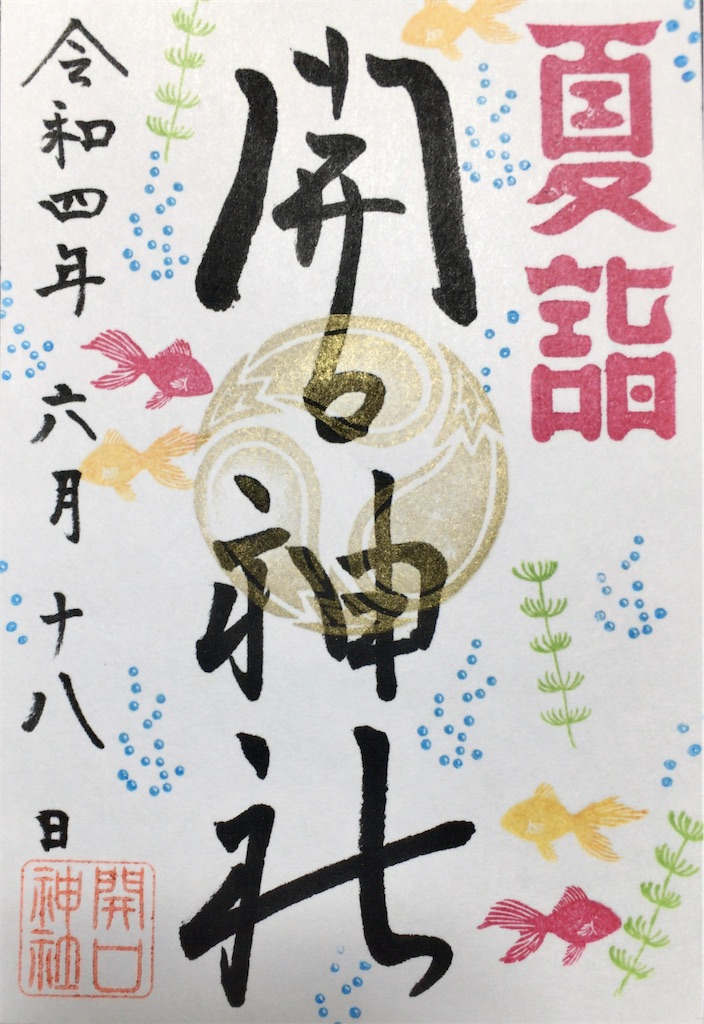 夏詣
開口神社
令和四年 六月 十八 日
開口
神社